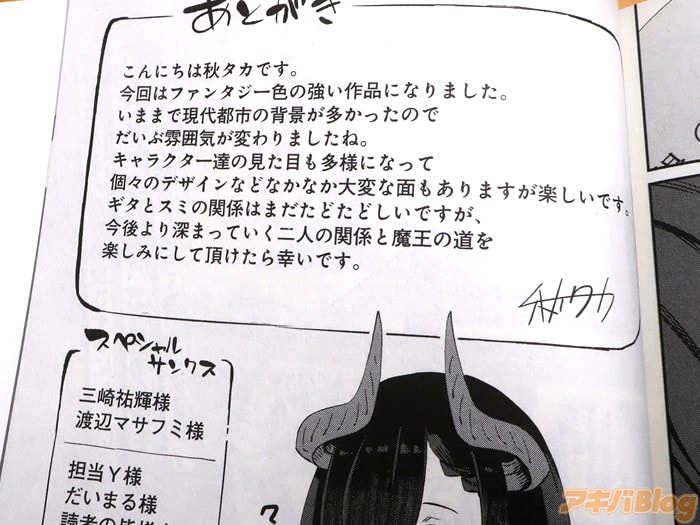 あとがき
こんにちは秋タカです。
今回はファンタジー色の強い作品になりました。
いままで現代都市の背景が多かったので
だいぶ雰囲気が変わりましたね。
キャラクター達の見た目も多様になって
個々のデザインなどなかなか大変な面もありますが楽しいです。
ギタとスミの関係はまだたどたどしいですが、
今後より深まっていく二人の関係と魔王の道を
楽しみにして頂けたら幸いです。
秋タカ
スペシャル
サンクス
三崎祐輝様
渡辺マサフミ様
担当Y様
だいまる様
読者の皆様
?
アキバBlog